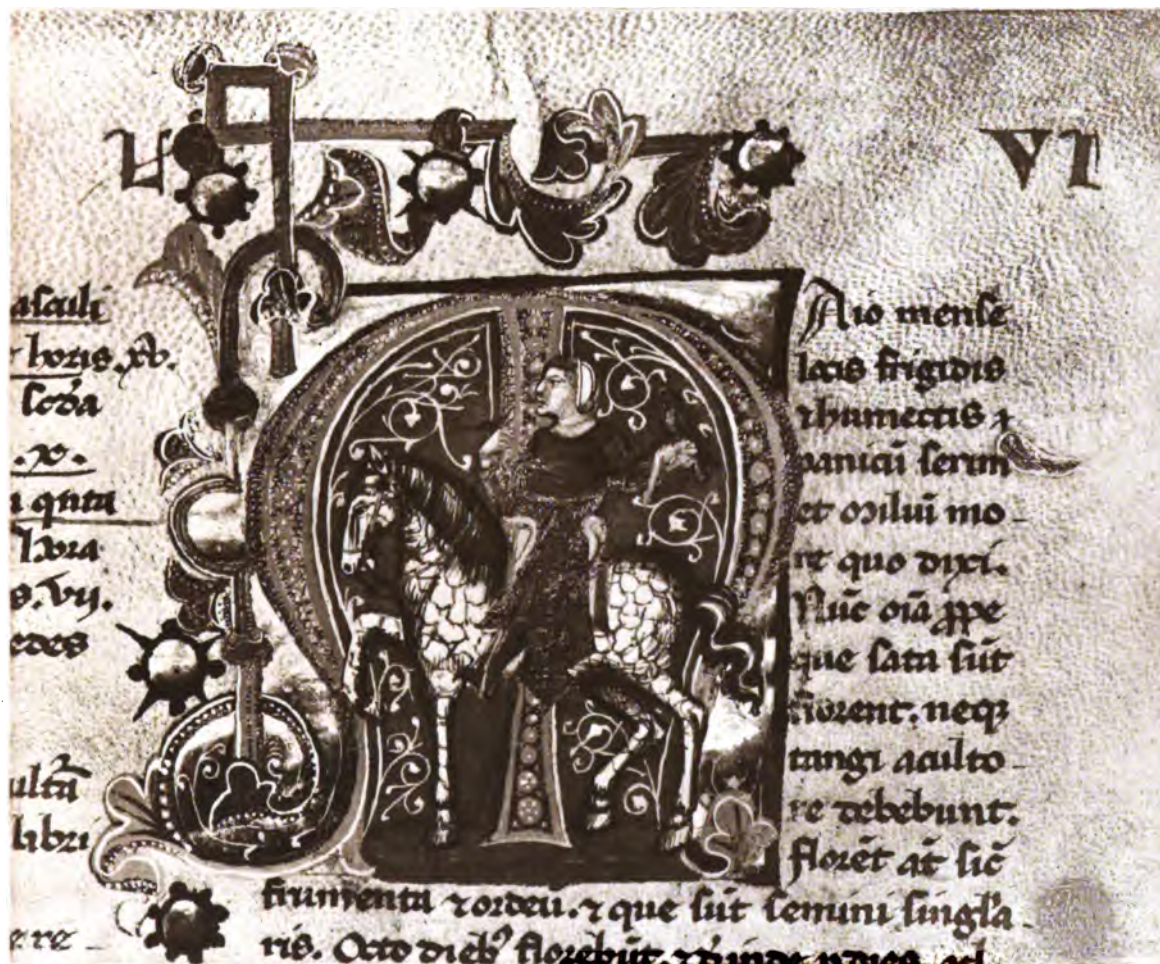 VI
asculi
horis .xv.
scd̄a
.x.
qnta
hora
s. vij.
edes
ultā
libri
ere
Maio mense
locis frigidis
⁊ humectis ⁊
panicū serim
et miliū mo-
re quo dixi.
Nūc oīa ꝓpe
que sata sūt
florent. neqꝫ
tangi aculto-
re debebunt.
florēt aūt sic̄
frumenta ⁊ ordeū. ⁊ que sūt semini singl̓a
ris. Octo dieb⁹ florebūt.